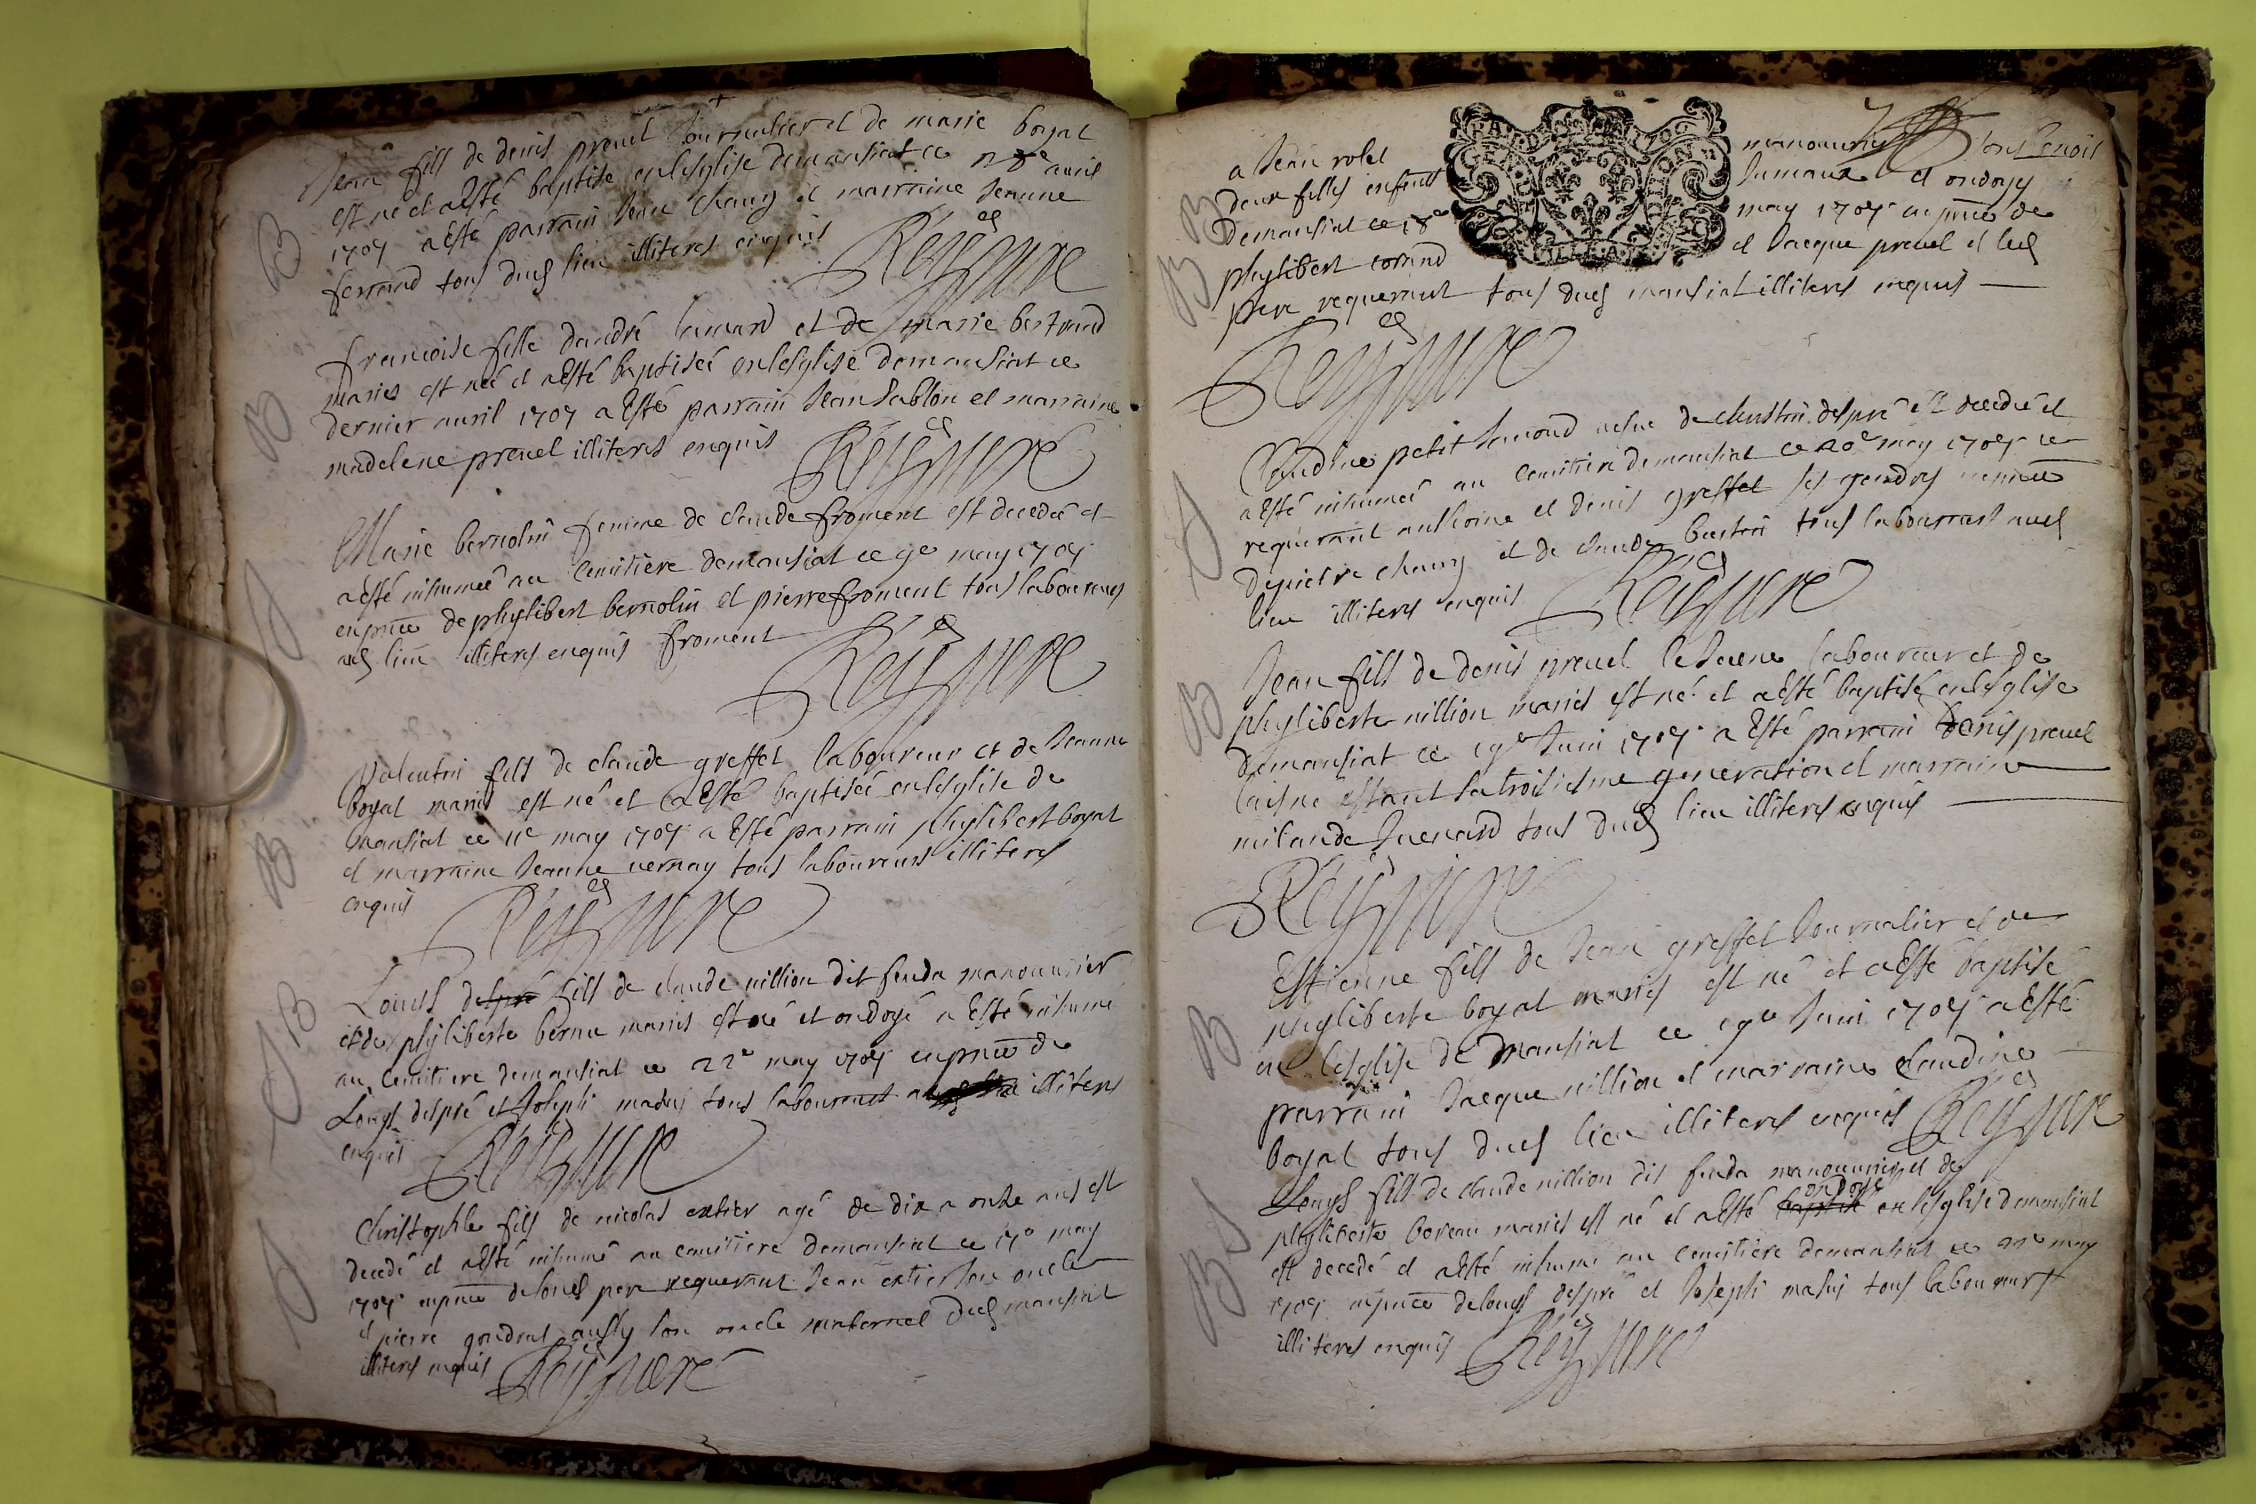 Jean fils de denis preuel Journalier et de marie boyat
est né et a esté baptisé en lesglise demansiat ce avril
1707 a esté parrain Jean Chaug et marraine Jeanne
ferrand tous dud lieu illiteres enquis
Reyssure
B
francoise fille dandré lamard et de marie bertrand
maries est néé et a esté baptiséé en lesglise demansiat ce
dernier auril 1707 a esté parrain Jean Sablon et marraine
madelene preuel illiteres enquis
Reyssure
B
Marie bernolin femme de claude froment est decedéé et
a esté inhuméé au Cemitiere demansiat ce 9e may 1707
en pnce de phylibert bernolin et pierre froment tous laboureurs
aud lieu illiteres enquis froment
Reyssure
Valentin fils de claude greffet laboureur et de Jeanne
boyat mariés est né et a esté baptiséé en lesglise de
mansiat ce 11e may 1707 a esté parrain phylibert boyat
et marraine Jeanne vernay tous laboureurs illiteres
enquis
Reyssure
B
Louys despré fils de claude nillion dit feuda manouurier
et de phyliberte bernu mariés est né et ondoyé a esté inhumé
au Cemitiere demansiat ce 22e may 1707 en pnce de
Louys despré et Joseph maduj tous laboureurs illiteres
enquis
Reyssure
B
Christophle fils de nicolas extier agé de dix a onze ans est
decedé et a esté inhumé au cemitiere demansiat ce may
1707 en pnce de son pere requerant Jean extier son oncle
et pierre gondrat aussy son oncle maternel dud mansiat
illiteres enquis
Reyssure
a Jean rolet manouurier
deux filles enfants Jumaux et ondoyes
demansiat ce 18e may 1707 en pnce de
phylibert corrand et Jacque preuel et led
pere requerant tous dud mansiat illiteres enquis
Reyssure
B
B
Claudine petit Jamond vefue de despré est decedéé et
a esté inhuméé au Cemitiere demansiat ce 20e may 1707 ce
requerant anthoine et denis greffet ses gendres en pnce
de pierre Chaug et de claude bastin tous laboureurs aud
lieu illiteres enquis
Reyssure
Jean fils de denis preuel le Jeune laboureur et de
phyliberte nillion mariés est né et a esté baptisé en lesglise
demansiat ce 19e Juin 1707 a esté parrain denis preuel
laisné estant la troisiesme generation et marraine
milande Juenard tous dud lieu illiteres enquis
Reyssure
B
Estienne fils de Jean greffet Journalier et de
phyliberte boyat mariés est né et a esté baptisé
en lesglise de mansiat ce 19e Juin 1707 a esté
parrain Jacque nillion et marraine claudine
boyat tous dud lieu illiteres enquis
Reyssure
B
Louys fils de claude nillion dit feuda manouurier et de
ondoyé
phyliberte boreau mariés est né et a esté baptisé en lesglise demansiat
est decedé et a esté inhumé au cemitiere demansiat ce may
1707 en pnce de louys despré et Joseph maduj tous laboureurs
illiteres enquis
Reyssure
B